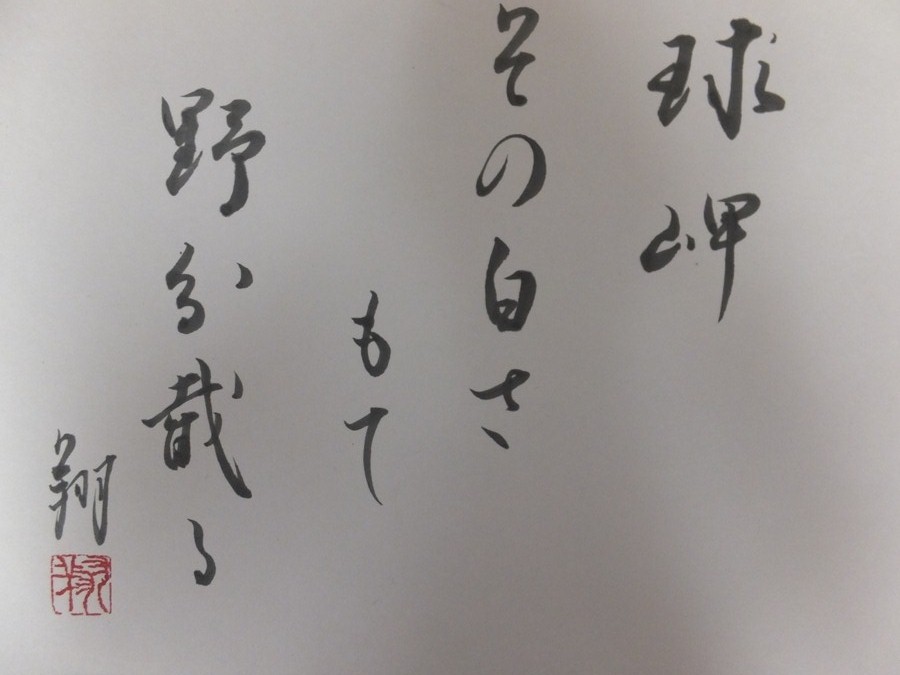 球岬
その白さ
もて
野分截る
翔